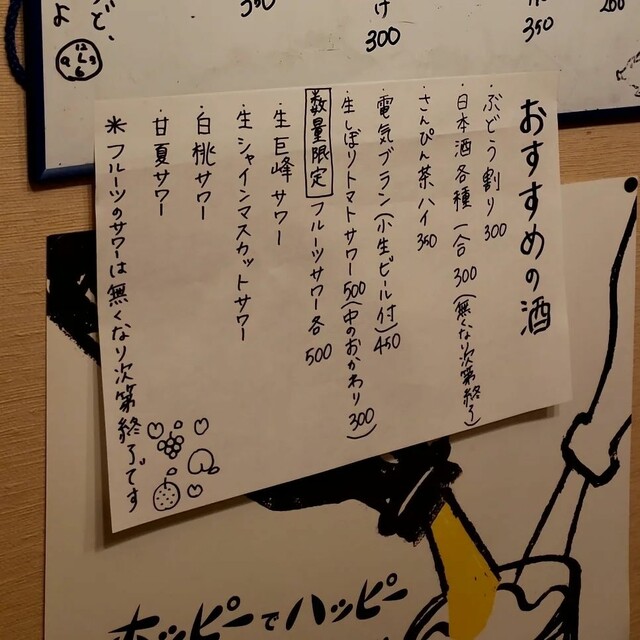 350
け
300
350
200
ぶど、
よ
おすすめの酒
・ぶどう割り 300
・日本酒各種 一合 300 (無くなり次第終了)
・さんぴん茶ハイ 350
・電気ブラン(小生ビール付) 450
・生しぼりトマトサワー 500 (中のおかわり 300)
数量限定 フルーツサワー各 500
・生巨峰サワー
・生シャインマスカットサワー
・白桃サワー
・甘夏サワー
※フルーツのサワーは無くなり次第終了です
ホッピーでハッピー